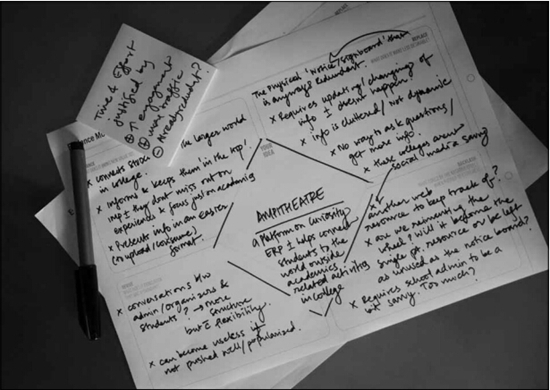 Time & Effort
justified by
⊕ ↑ engagement
⊕ user traffic
⊖ Already redundant?
the larger world
in college.
× informs & keeps them 'in the loop'.
they don't miss out on
experience & focus just on academics
× Presents info in an easier
(to upload/consume)
format.
The physical 'notice/signboard' that
is anyways redundant.
× Requires updating/changing of
info & doesn't happening
× info is cluttered/not dynamic
× No way to ask questions/
get more info.
× these colleges aren't
social media savvy
YOUR IDEA
AMPITHEATRE
a platform on curiosity
ERP & helps connect
students to the
world outside
academics/
related activities
in college
× conversations b/w
admin/organizers &
students? → more
structure
but flexibility.
× can become useless if
not pushed well/popularized.
another web
resource to keep track of?
× are we reinventing the
wheel? Will it become the
single pt. resource or be left
as unused as the notice board?
× Requires school admin to be a
lot savvy. Too much?